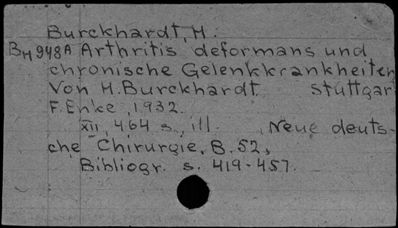 Burckhardt, H.
BM948A Arthritis deformans und
chronische Gelenkkrankheiten
Von H. Burckhardt Stuttgar
F. Enke, 1932.
XII, 464 s., ill. , Neue deuts-
che Chirurgie, B. 52,
Bibliogr. s. 419-457.